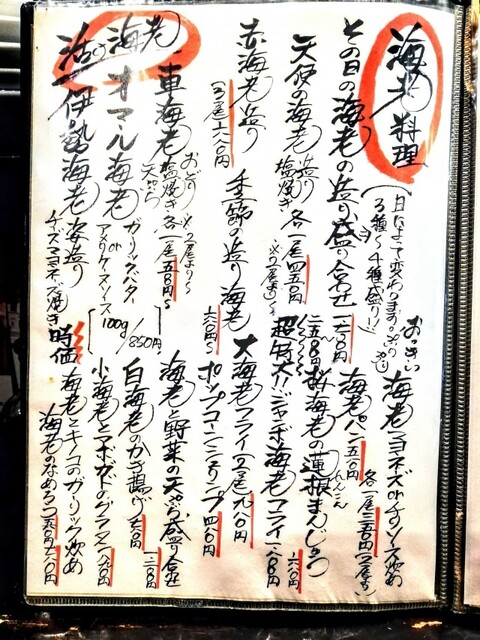 海老料理
その日の海老の造り盛り合せ
(日によって変わります
3種〜4種盛り!!
天使の海老 造り 塩焼き 各一尾四五〇円
※2尾より
赤海老造り
(3尾)六八〇円
季節の造り海老
活の海老
車海老 おどり 塩焼き 天ぷら ※2尾より 各一尾五五〇円〜
オマール海老 ガリックバター or アメリケーヌソース 100g/850円
伊勢海老 姿造り
チーズマヨネーズ焼き 時価
おっきい 海老マヨネーズorチリソース炒め
各一尾三五〇円(2尾より)
海老パン 五八〇円
桜海老の蓮根まんじゅう
超特大!!ジャンボ海老フライ
大海老フライ(2尾)九八〇円
ポップコーンシュリンプ 四八〇円
海老と野菜の天ぷら盛り合せ
白海老のかき揚げ
小海老とアボガドのグラタン
海老とキノコのガーリック炒め
海老のなめろう